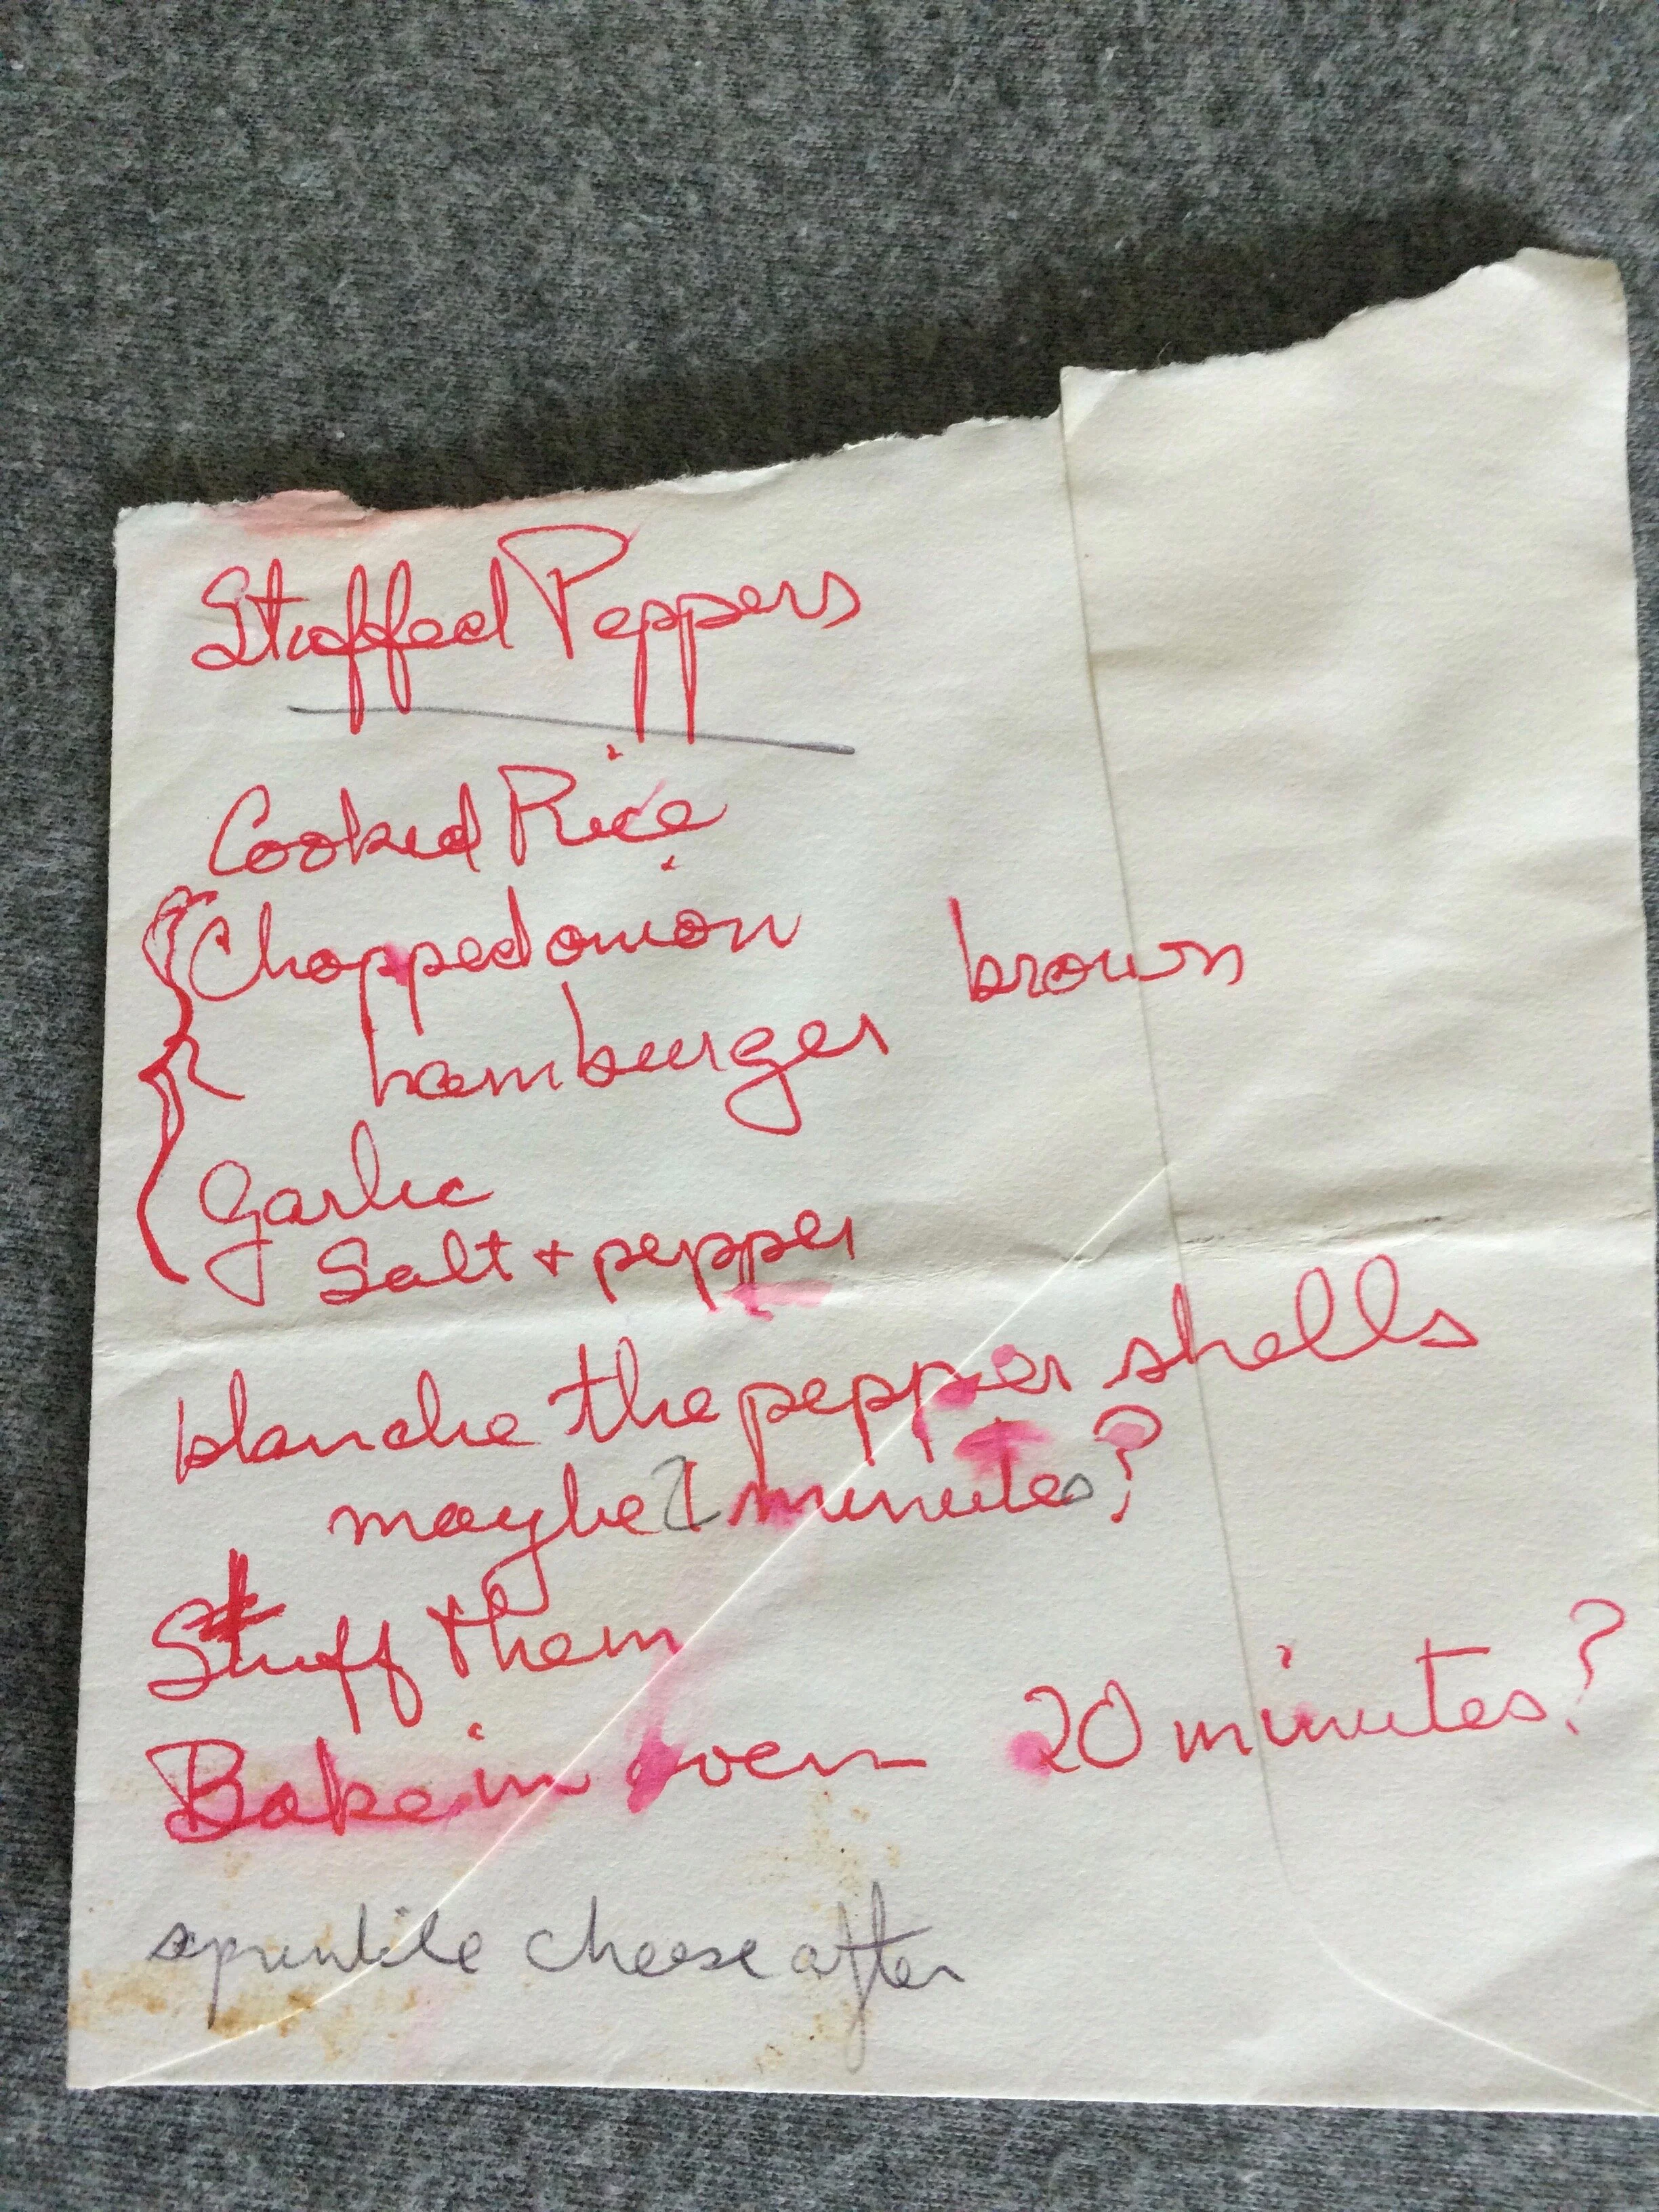 Stuffed Peppers
Cooked Rice
Chopped onion
brown
hamburger
Garlic
Salt + pepper
blanche the pepper shells
maybe 2 minutes?
Stuff them
Bake in oven 20 minutes?
sprinkle cheese after